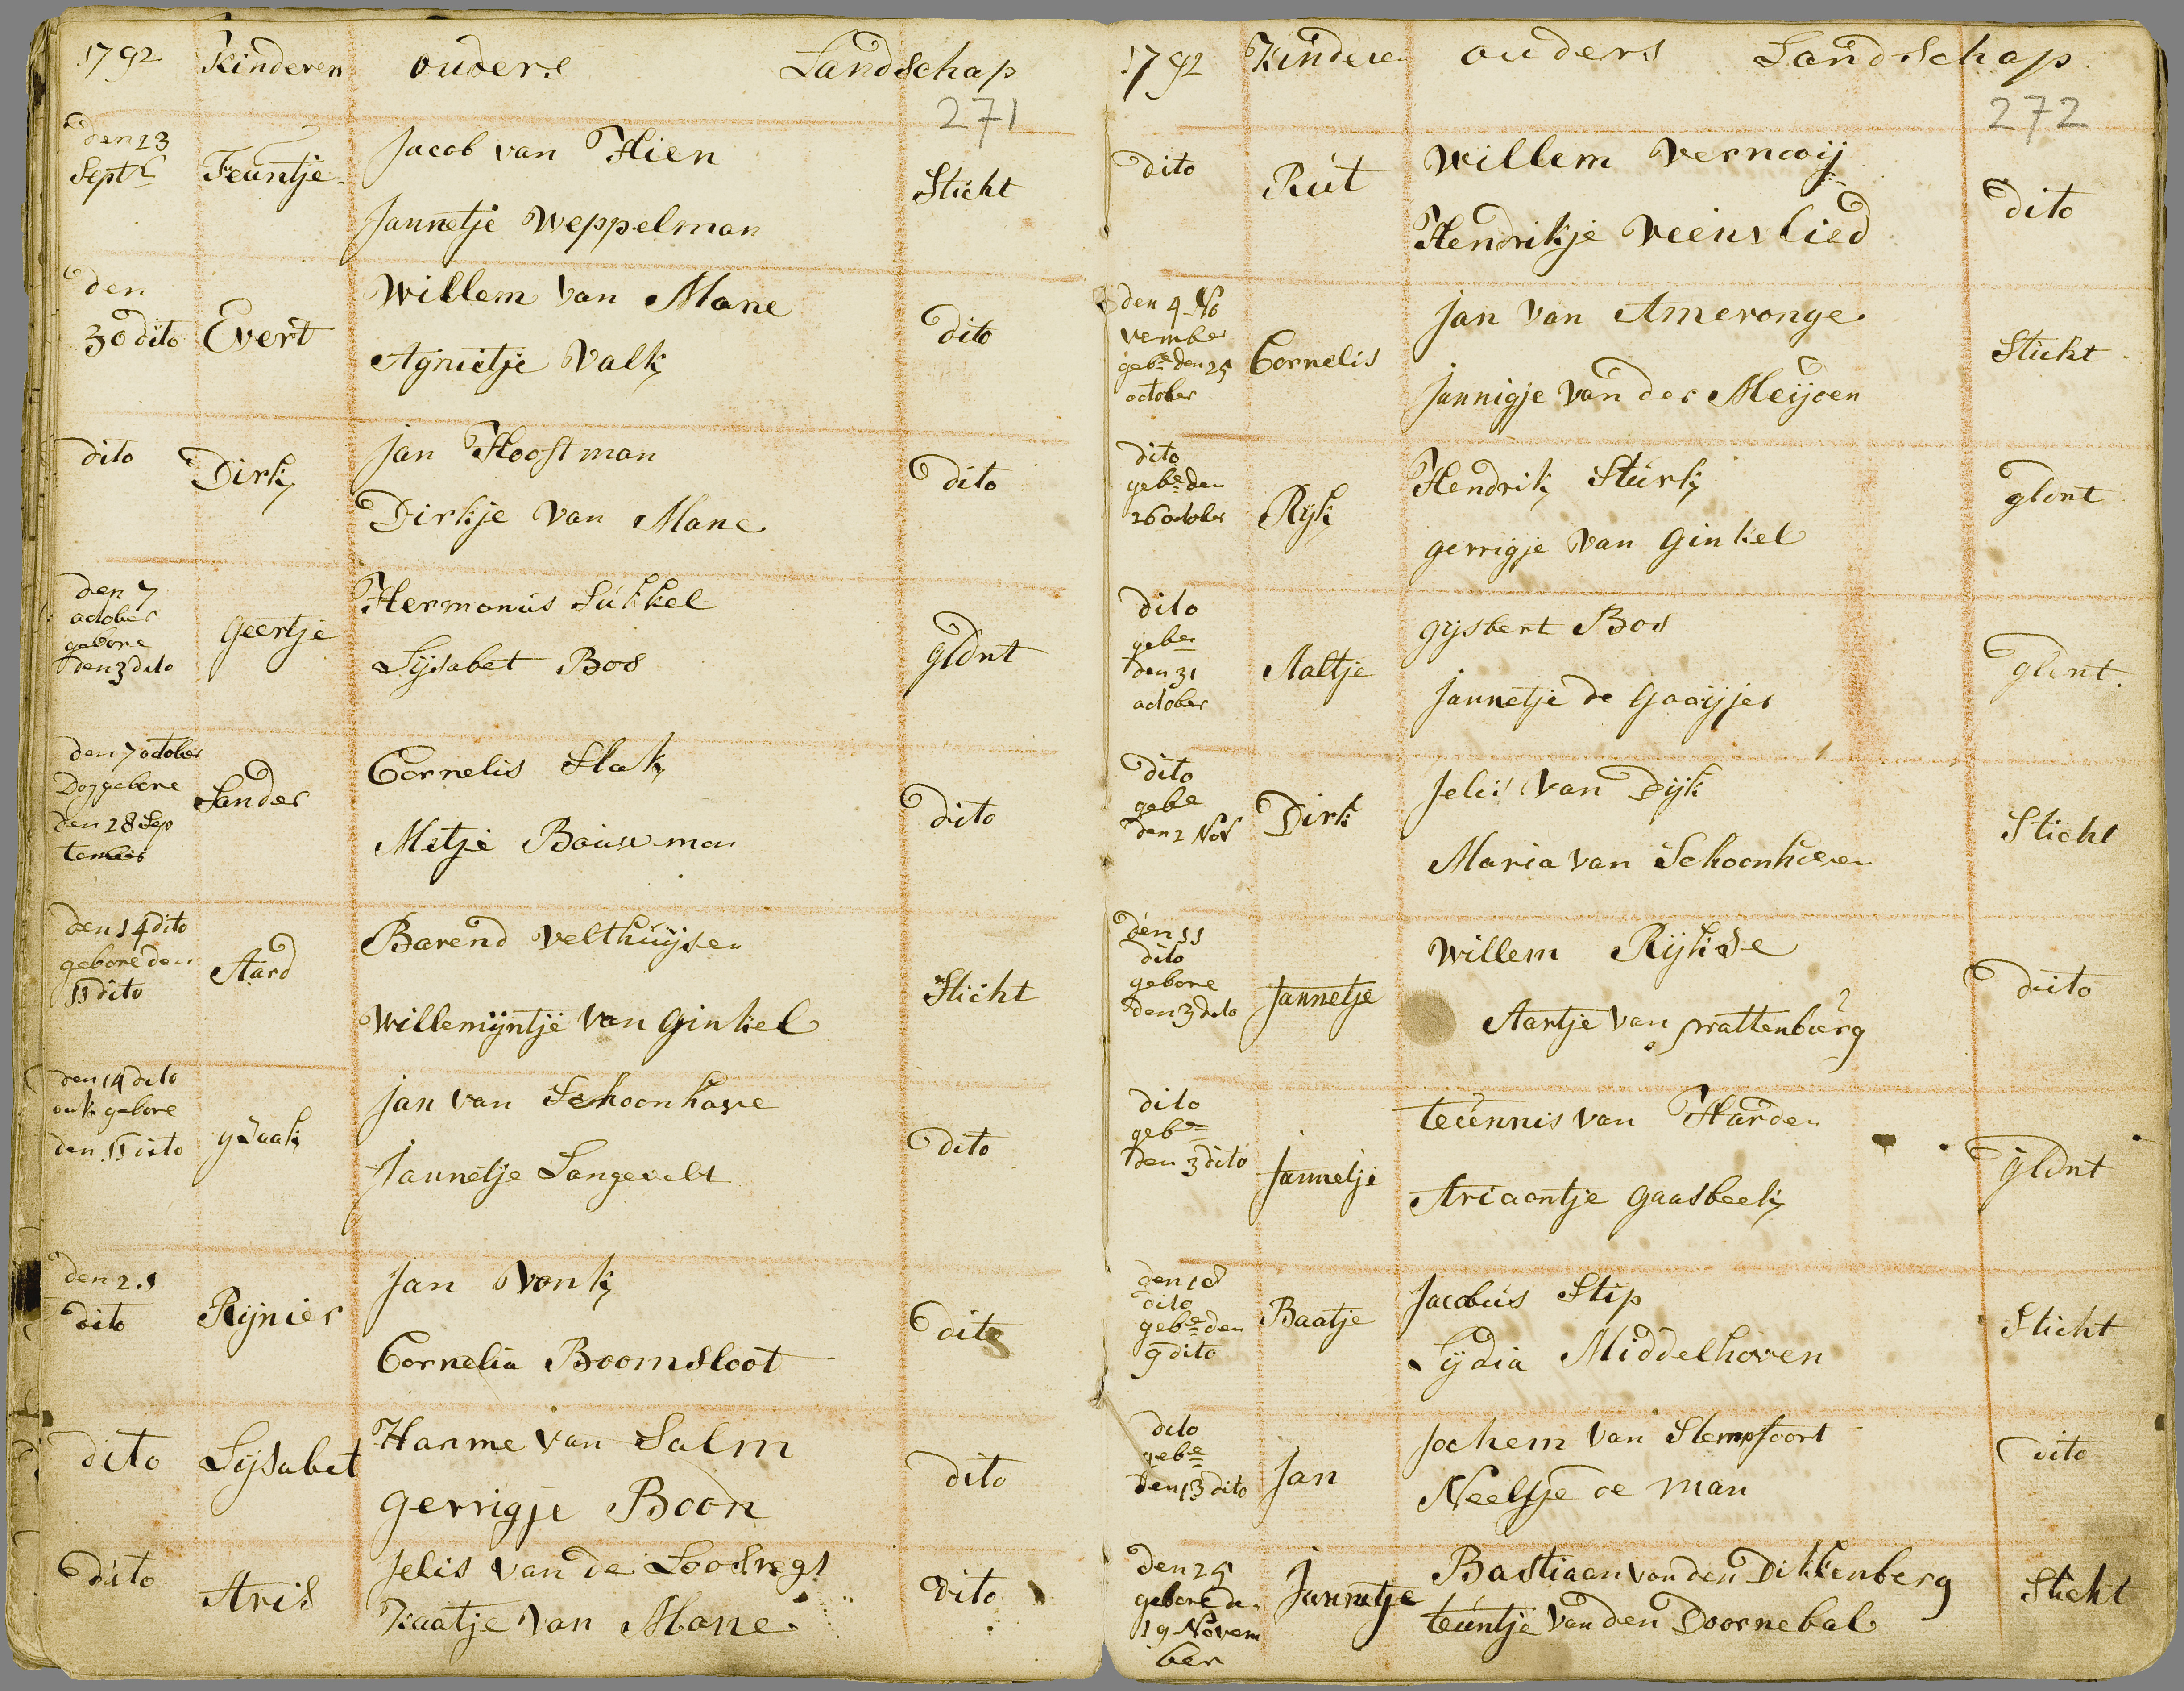 1792 Kinderen ouders Landschap
271
den 23
Septr
Teuntje
Jacob van Hien
Jannetje Weppelman
Sticht
den
30 dito
Evert
Willem van Mane
Agnietje Valk
dito
dito
Dirk
Jan Hooftman
Dirkje van Mane
dito
den 7
october
gebore
den 3 dito
geertje
Hermanus Sukkel
Lijsabet Bos
gldnt
den 7 october
Dog gebore
den 28 Sep
tember
Sander
Cornelis Slak
Metje Bouwman
dito
den 14 dito
gebore den
11 dito
Aard
Barend Velthuijsen
Willemijntje van ginkel
Sticht
den 14 dito
ook gebore
den 11 dito
ysaak
Jan van Schoonhove
Jannetje Langevelt
dito
den 21
dito
Rijnier
Jan Vonk
Cornelia Boomsloot
dito
dito
Lijsabet
Harme van Salm
gerrigje Boon
dito
dito
Aris
Jelis van de Loosregt
Kaatje van Mane
dito
1792 Kindere ouders Landschap
272
dito
Rut
Willem Vernooij
Hendrikje Veenslied
dito
den 4 No
vember
gebe den 25
october
Cornelis
Jan van Ameronge
Jannigje van der Meijden
Sticht
dito
gebe den
26 october
Rijk
Hendrik Sturk
gerrigje van ginkel
gldnt
dito
gebe
den 31
october
Aaltje
gijsbert Bos
Jannetje de gooijer
gldnt
dito
gebe
den 2 Nov
Dirk
Jelis van Dijk
Maria van Schoonhoven
Sticht
den 11
dito
gebore
den 3 dito
Jannetje
Willem Rijkse
Aartje van prattenburg
dito
dito
gebe
den 3 dito
Jannetje
teunnis van Harden
Ariaantje gaasbeek
gldnt
den 18
dito
gebe den
9 dito
Baatje
Jacobus Stip
Lijdia Middelhoven
Sticht
dito
gebe
den 13 dito
Jan
Jochem van Stempfoort
Neeltje de man
dito
den 25
gebore den
19 Novem
ber
Jannetje
Bastiaan van den Dikkenberg
teuntje van den Doornebal
Sticht